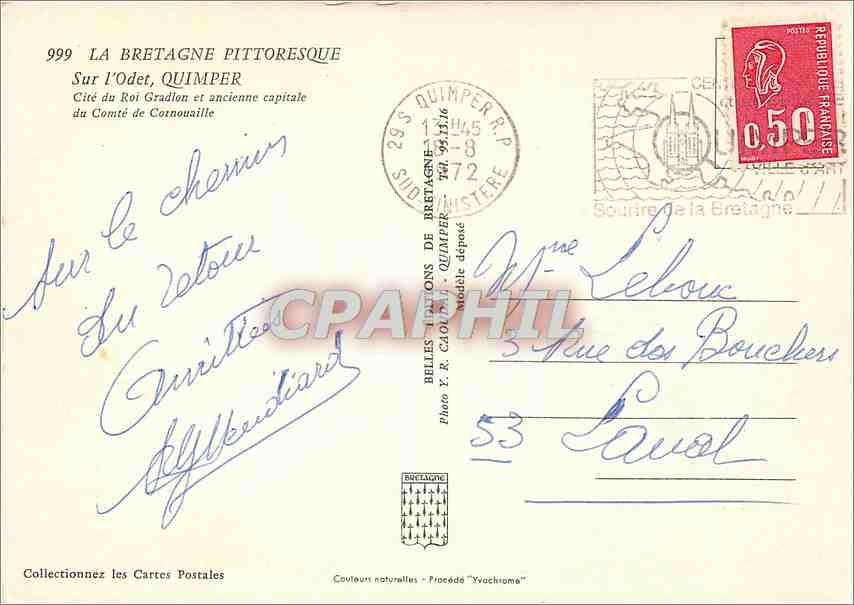 999 LA BRETAGNE PITTORESQUE
Sur l'Odet, QUIMPER
Cité du Roi Gradlon et ancienne capitale
du Comté de Cornouaille
Sur le chemin
du retour
Amitiés
29 S QUIMPER R.P
13H45
8
1972
SUD-FINISTERE
Sourire de la Bretagne
VILLE D'ART
POSTES
REPUBLIQUE FRANÇAISE
0,50
BELLES EDITIONS DE BRETAGNE
Photo Y. R. CAOUDAL - QUIMPER - Tél. 95.15.16
Modèle déposé
CPAPHIL
Mme Lebouc
3 Rue des Bouchers
53 Laval
BRETAGNE
Collectionnez les Cartes Postales
Couleurs naturelles - Procédé "Yvachrome"